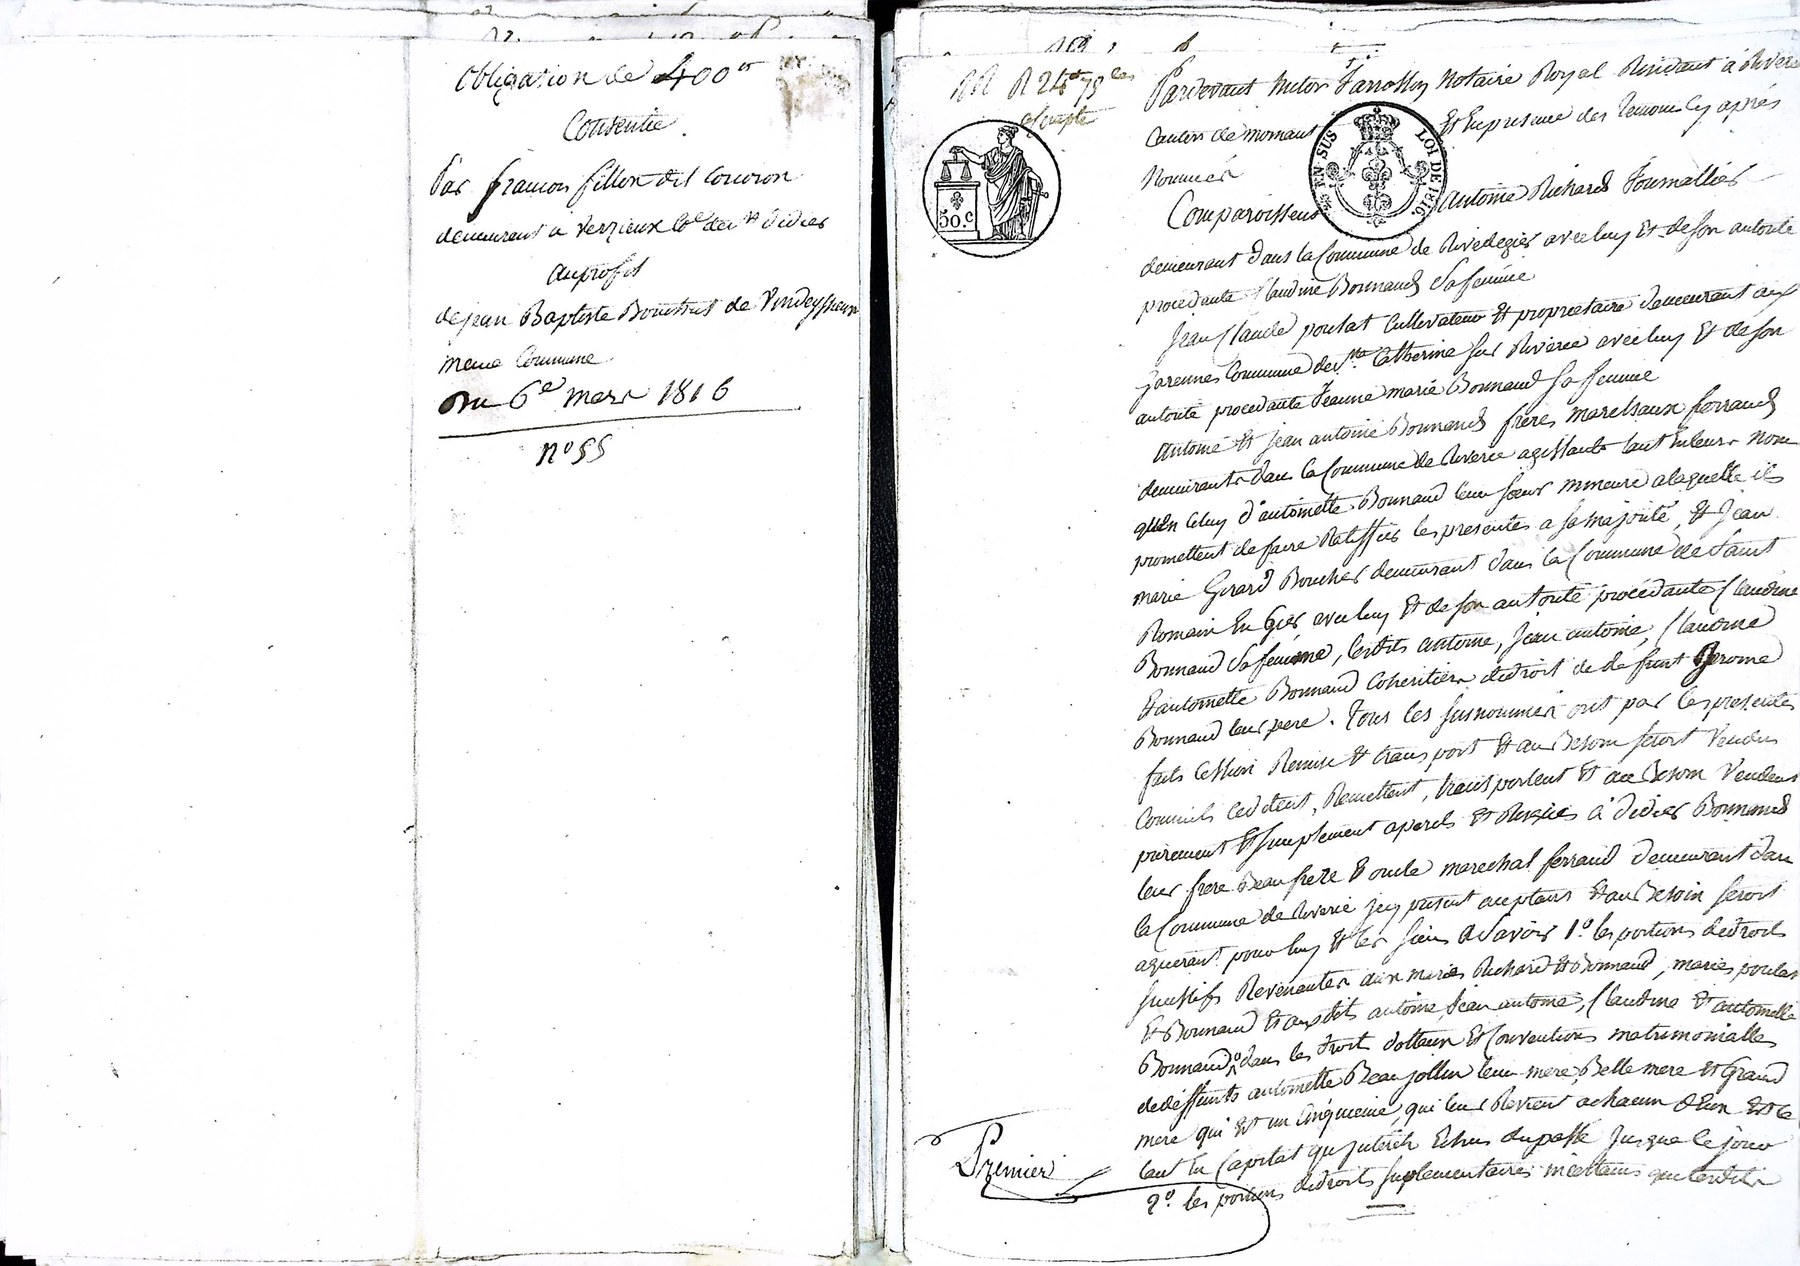 obligation de 400 tt
Consentie
Par francois fillon dit
demeurant a verzieux Cne de st Didier
au profit
de jean Baptiste de
meme Commune
Du 6e mars 1816
n° 55
Pardevant Notaire Royal Residant à Riverie
Canton de mornant Et En presence des temoins Cy aprés
Nommés
Comparoissent Antoine Richard
demeurant dans la Commune de Rivedegier avec luy Et de son autorité
procedante Claudine Bonnand Sa femme
Jean Claude poulat Cultivateur Et proprietaire demeurant aux
garennes Commune de Ste Catherine sur Riverie avec luy Et de son
autorité procedante Jeanne marie Bonnand Sa femme
Antoine Et jean antoine Bonnand freres marechaux ferrand
demeurants dans la Commune de Riverie agissants tant En leurs Nom
qu'En Celuy d'antoinette Bonnand leur soeur mineure a laquelle ils
promettent de faire Ratiffier les presentes a sa majorité, Et Jean
marie Girard Boucher demeurant dans la Commune de Saint
Romain En Gier avec luy Et de son autorité procédante Claudine
Bonnand Sa femme, lesdits antoine, Jean antoine, Claudine
Et antoinette Bonnand Coheritiers de droit de defunt Jerome
Bonnand leur pere. Tous les susnommés ont par les presentes
faits Cession Remise Et transport Et au Besoin seront Vendus
Comme ils Cedent, Remettent, transportent Et au Besoin Vendent
purement Et simplement a Didier Bonnand
leur frere Beau frere Et oncle marechal ferrand demeurant dans
la Commune de Riverie Jcy present acceptant Et au Besoin seroit
aquerant pour luy Et les siens a Savoir 1° les portions de droits
successifs Revenantes aux mariés Richard Et Bonnand, mariés poulat
Et Bonnand Et auxdits antoine, Jean antoine, Claudine Et antoinette
Bonnand dans les droits dottaux Et Conventions matrimonialles
de deffunte antoinette Beaujollin leur mere, Belle mere Et Grand
mere qui Est un Cinquieme, qui leur Revient a chacun d'Eux Et Ce
tant En Capital qu'jnterêts Echus du passé jusqua Ce jour
2°. les portions de droits suplementaires que lesdits
Premier
50 c.
EN SUS
LOI DE 1816